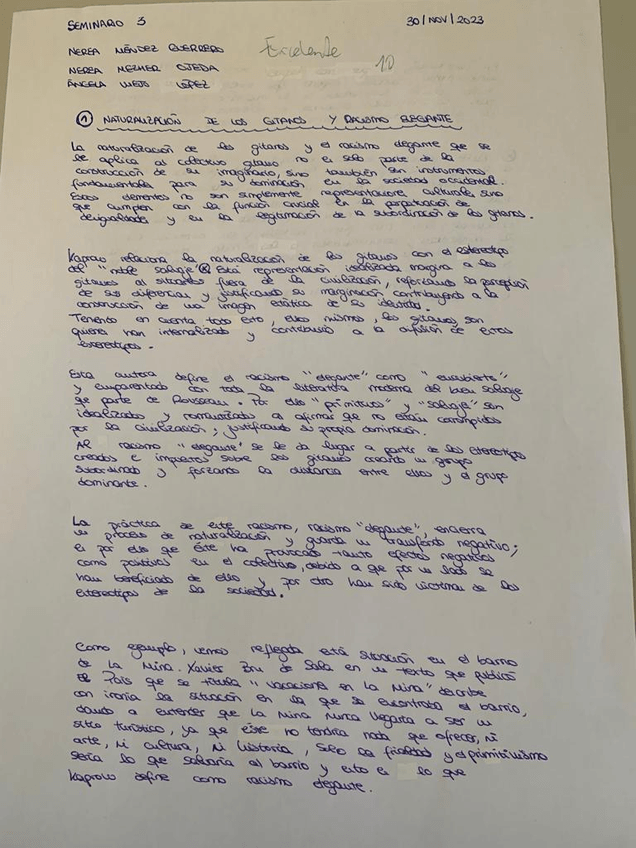 SEMINARIO 3
30/NOV/2023
NEREA MÉNDEZ GUERRERO
Excelente
10
NEREA MEZHER OJEDA
ÁNGELA NIETO LÓPEZ
1 NATURALIZACIÓN DE LOS GITANOS Y RACISMO ELEGANTE
La naturalización de los gitanos y el racismo elegante que se
le aplica al colectivo gitano no es solo parte de la
construcción de su imaginario, sino también son instrumentos
fundamentales para su dominación en la sociedad occidental.
Estos elementos no son simplemente representaciones culturales sino
que cumplen con la función crucial en la perpetuación de
desigualdades y en la legitimación de la subordinación de los gitanos.
Kaprow relaciona la naturalización de los gitanos con el estereotipo
del "noble salvaje". Está representación idealizada margina a los
gitanos al situarlos fuera de la civilización, reforzando la percepción
de sus diferencias y justificando su marginación, contribuyendo a la
construcción de una imagen estática de su identidad.
Teniendo en cuenta todo esto, ellos mismos, los gitanos, son
quienes han internalizado y contribuido a la difusión de estos
estereotipos.
Esta autora define el racismo "elegante" como "encubierto"
y emparentado con toda la literatura moderna del buen salvaje
que parte de Rousseau. Por ello "primitivos" y "salvajes" son
idealizados y romantizados al afirmar que no están corrompidos
por la civilización, justificando su propia dominación.
Al racismo "elegante" se le da lugar a partir de los estereotipos
creados e impuestos sobre los gitanos creando un grupo
subordinado y forzando la distancia entre ellos y el grupo
dominante.
La práctica de este racismo, racismo "elegante", encierra
un proceso de naturalización y guarda un transfondo negativo;
es por ello que éste ha provocado tanto efectos negativos
como positivos en el colectivo, debido a que por un lado se
han beneficiado de ello y por otro han sido víctimas de los
estereotipos de la sociedad.
Como ejemplo, vemos reflejada está situación en el barrio
de La Mina. Xavier Bru de Sala en un texto que publicó
El País que se titula "vacaciones en La Mina" describe
con ironía la situación en la que se encontraba el barrio,
dando a entender que La Mina nunca llegaría a ser un
sitio turístico, ya que éste no tendría nada que ofrecer, ni
arte, ni cultura, ni historia, solo la frialdad y el primitivismo
sería lo que salvaría al barrio y esto es lo que
Kaprow define como racismo elegante.